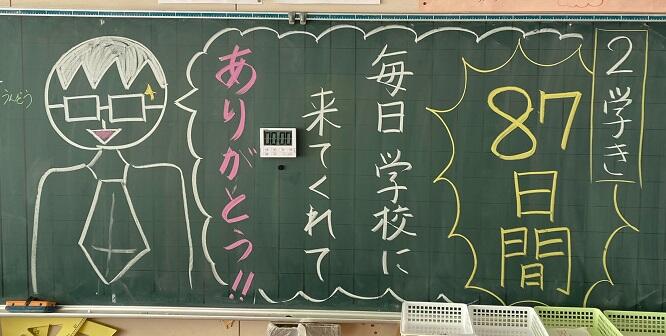 2学き
87日間
毎日学校に
来てくれて
ありがとう!!
うんどう